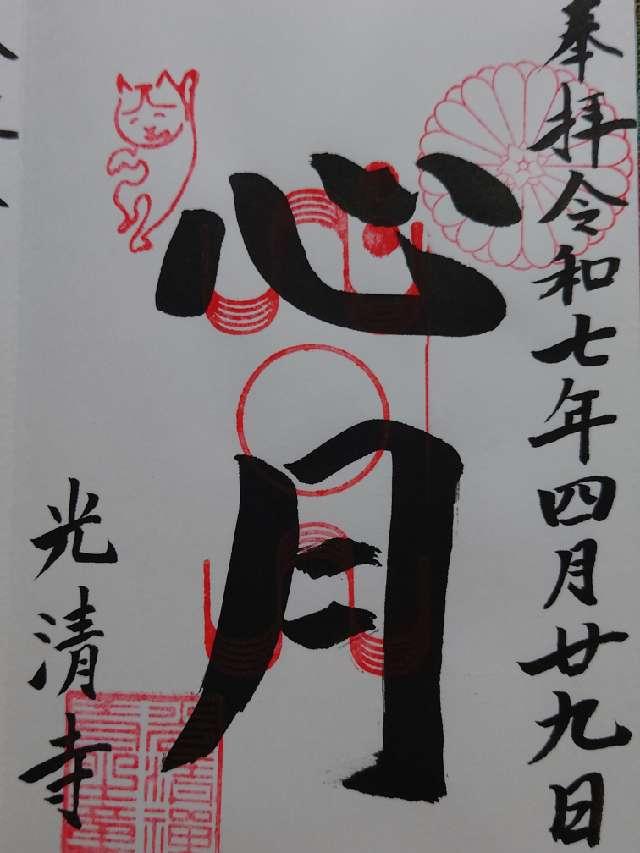 奉拝令和七年四月廿九日
心月
光清寺